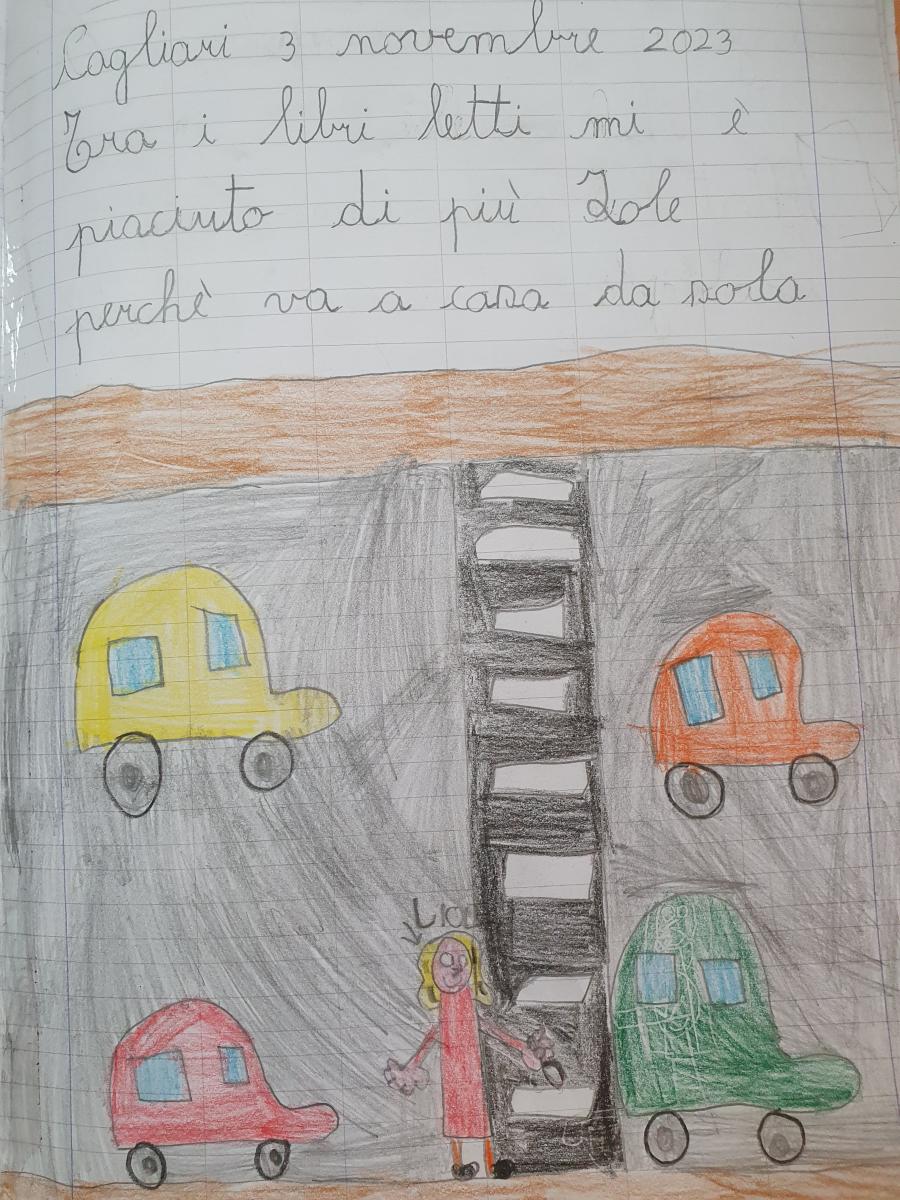 Cagliari 3 novembre 2023
Tra i libri letti mi è
piaciuto di più Lole
perchè va a casa da sola